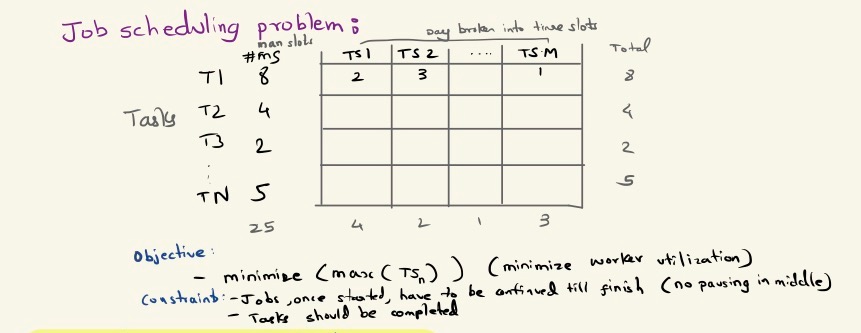 Job scheduling problem:
man slots
Day broken into time slots
#ms TS1 TS2 .... TS.M Total
T1 8 2 3 1 8
Tasks T2 4 4
T3 2 2
TN 5 5
25 4 2 1 3
Objective:
- minimize (max(TSn)) (minimize worker utilization)
Constraint: - Jobs, once started, have to be continued till finish (no pausing in middle)
- Tasks should be completed